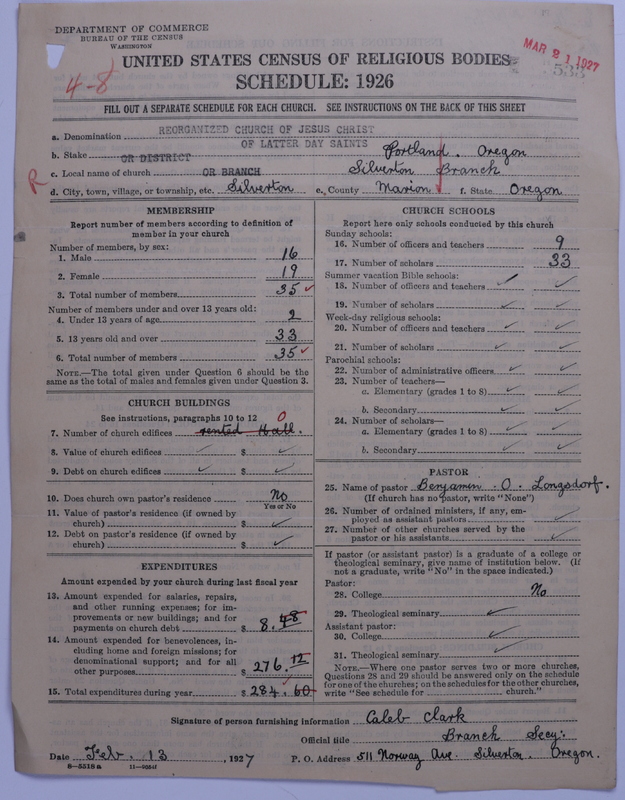 DEPARTMENT OF COMMERCE
BUREAU OF THE CENSUS
WASHINGTON
MAR 21 1927
533
4-8
UNITED STATES CENSUS OF RELIGIOUS BODIES
SCHEDULE: 1926
FILL OUT A SEPARATE SCHEDULE FOR EACH CHURCH. SEE INSTRUCTIONS ON THE BACK OF THIS SHEET
a. Denomination REORGANIZED CHURCH OF JESUS CHRIST
OF LATTER DAY SAINTS
b. Stake OR DISTRICT Portland. Oregon
c. Local name of church OR BRANCH Silverton Branch
R
d. City, town, village, or township, etc. Silverton e. County Marion f. State Oregon
MEMBERSHIP
Report number of members according to definition of
member in your church
Number of members, by sex:
1. Male 16
2. Female 19
3. Total number of members 35
Number of members under and over 13 years old:
4. Under 13 years of age 2
5. 13 years old and over 33
6. Total number of members 35
NOTE.—The total given under Question 6 should be the
same as the total of males and females given under Question 3.
CHURCH BUILDINGS
See instructions, paragraphs 10 to 12 0
7. Number of church edifices rented Hall.
8. Value of church edifices $
9. Debt on church edifices $
10. Does church own pastor's residence No
Yes or No
11. Value of pastor's residence (if owned by
church) $
12. Debt on pastor's residence (if owned by
church) $
EXPENDITURES
Amount expended by your church during last fiscal year
13. Amount expended for salaries, repairs,
and other running expenses; for im-
provements or new buildings; and for
payments on church debt $ 8.48
14. Amount expended for benevolences, in-
cluding home and foreign missions; for
denominational support; and for all
other purposes $ 276.12
15. Total expenditures during year $ 284.60
CHURCH SCHOOLS
Report here only schools conducted by this church
Sunday schools:
16. Number of officers and teachers 9
17. Number of scholars 33
Summer vacation Bible schools:
18. Number of officers and teachers
19. Number of scholars
Week-day religious schools:
20. Number of officers and teachers
21. Number of scholars
Parochial schools:
22. Number of administrative officers
23. Number of teachers—
a. Elementary (grades 1 to 8)
b. Secondary
24. Number of scholars—
a. Elementary (grades 1 to 8)
b. Secondary
PASTOR
25. Name of pastor Benjamin O. Longsdorf.
(If church has no pastor, write "None")
26. Number of ordained ministers, if any, em-
ployed as assistant pastors
27. Number of other churches served by the
pastor or his assistants
If pastor (or assistant pastor) is a graduate of a college or
theological seminary, give name of institution below. (If
not a graduate, write "No" in the space indicated.)
Pastor:
28. College No
29. Theological seminary
Assistant pastor:
30. College
31. Theological seminary
NOTE.—Where one pastor serves two or more churches,
Questions 28 and 29 should be answered only on the schedule
for one of the churches; on the schedules for the other churches,
write "See schedule for church."
Signature of person furnishing information Caleb Clark
Official title Branch Secy:
Date Feb. 13, 1927 P. O. Address 511 Norway Ave. Silverton. Oregon.
8-5518a 11-9554